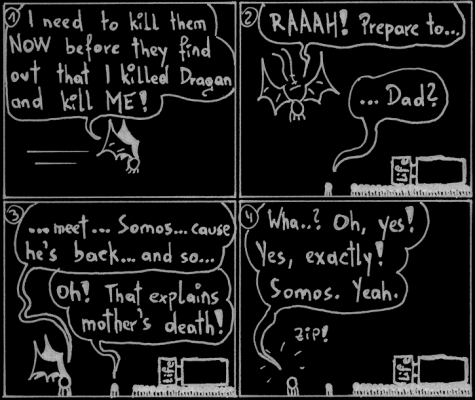 1
I need to kill them
NOW before they find
out that I killed Dragan
and kill ME!
2
RAAAH! Prepare to...
... Dad?
life
3
...meet... Somos...cause
he's back... and so...
Oh! That explains
mother's death!
life
4
Wha..? Oh, yes!
Yes, exactly!
Somos. Yeah.
ZIP!
life